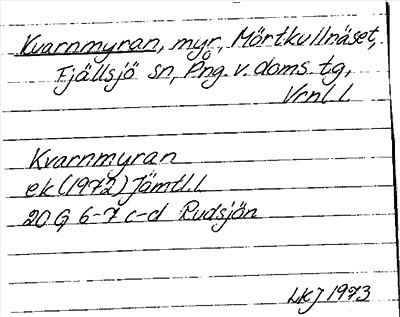 Kvarnmyran, myr, Mörtkullnäset,
Fjällsjö sn, Ång. v. doms. tg,
Vrnl. l.
Kvarnmyran
ek (1972) Jämtl. l.
20 G 6-7 c-d Rudsjön
LKJ 1973